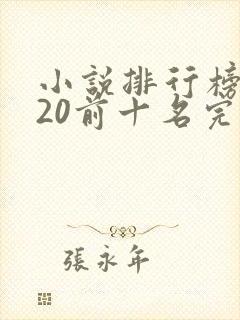 小說排行榜
20前十名完
張永年